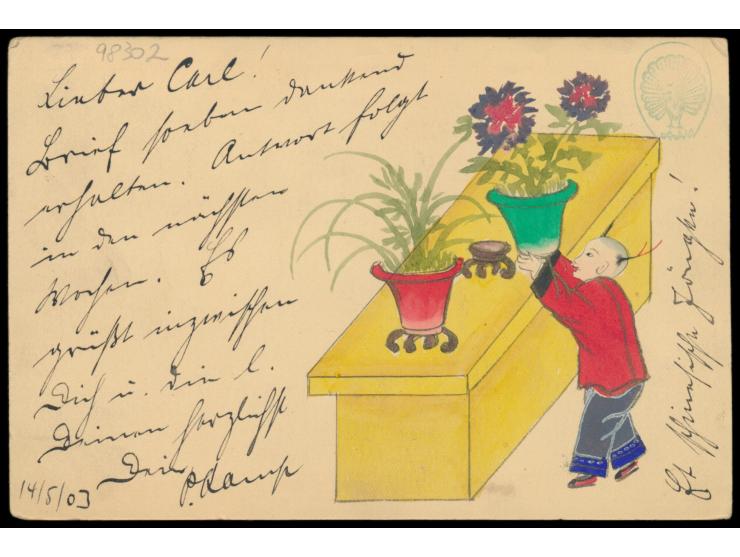 98302
Lieber Carl!
Brief soeben dankend
erhalten. Antwort folgt
in den nächsten
Wochen. Es
grüßt inzwischen
Dich u. die l.
Deinen herzlichst
Dein P. Kamp
14/5/03
chinesische